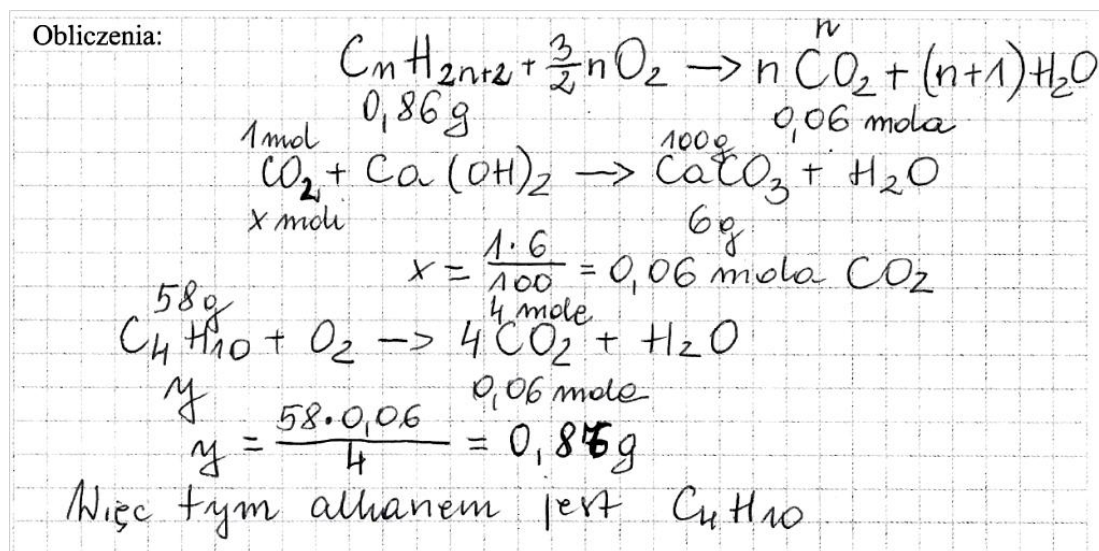 Obliczenia:
n
CnH2n+2 + 3/2 nO2 → n CO2 + (n+1) H2O
0,86 g 0,06 mola
1 mol 100 g
CO2 + Ca(OH)2 → CaCO3 + H2O
x moli 6 g
x = 1·6/100 = 0,06 mola CO2
58 g 4 mole
C4H10 + O2 → 4CO2 + H2O
y 0,06 mole
y = 58·0,06/4 = 0,8 g
Więc tym alkanem jest C4H10